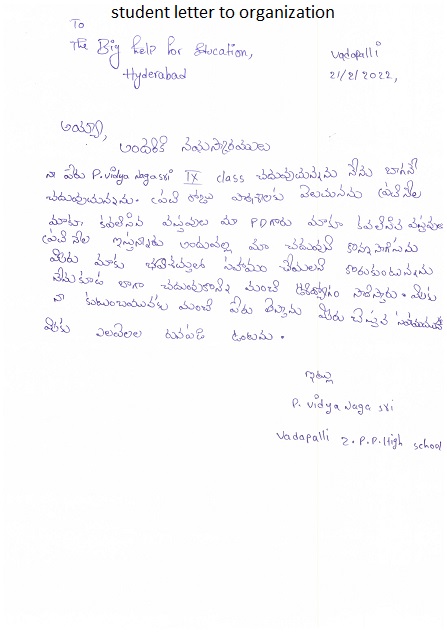 student letter to organization
To
The Big help for Education,
Hyderabad
Vadapalli
21/2/2022,
అయ్యా,
అందరికి నమస్కారములు
నా పేరు P. vidya naga sri IX class చదువుచున్నాను నేను బాగానే
చదువుచున్నాను. ప్రతి రోజు పాఠశాలకు వెలుచునను ప్రతి నెల
మాకు కవలసిన వస్తువులు మా PD గారు మాకు కవలసిన వస్తువులు
ప్రతి నెల ఇస్తున్నారు అందువల్ల మా చదువుని కొన్నసాగిసను
మీరు మాకు భవిశత్తులో సహయం చేయలని కొరుకుంటున్నను
నేనుకూడ బాగా చదువుకొని మంచి ఉద్యోగం సాదిస్తాను. మీకు
నా కుటుంబమునకు మంచి పేరు తెస్తాను మీరు చేస్తున
మీకు ఎలవేలల రునపడి ఉంటను.
ఇట్లు
P. vidya naga sri
Vadapalli Z.P.P. High school